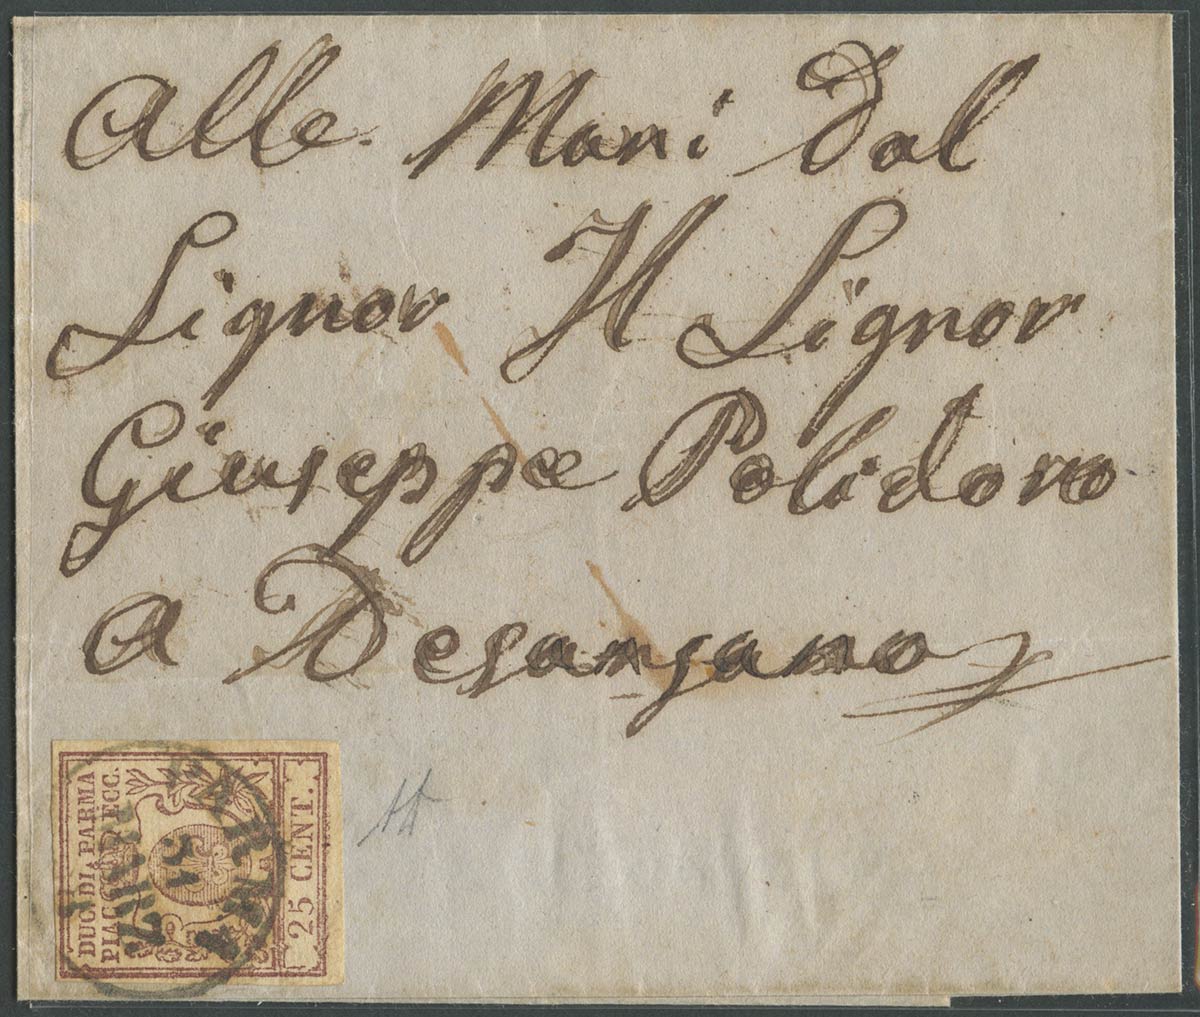 Alle Mani Dal
Signor Il Signor
Giuseppe Polidoro
a Desansano
DUC. DI PARMA
PIAC. ECC.
25 CENT.